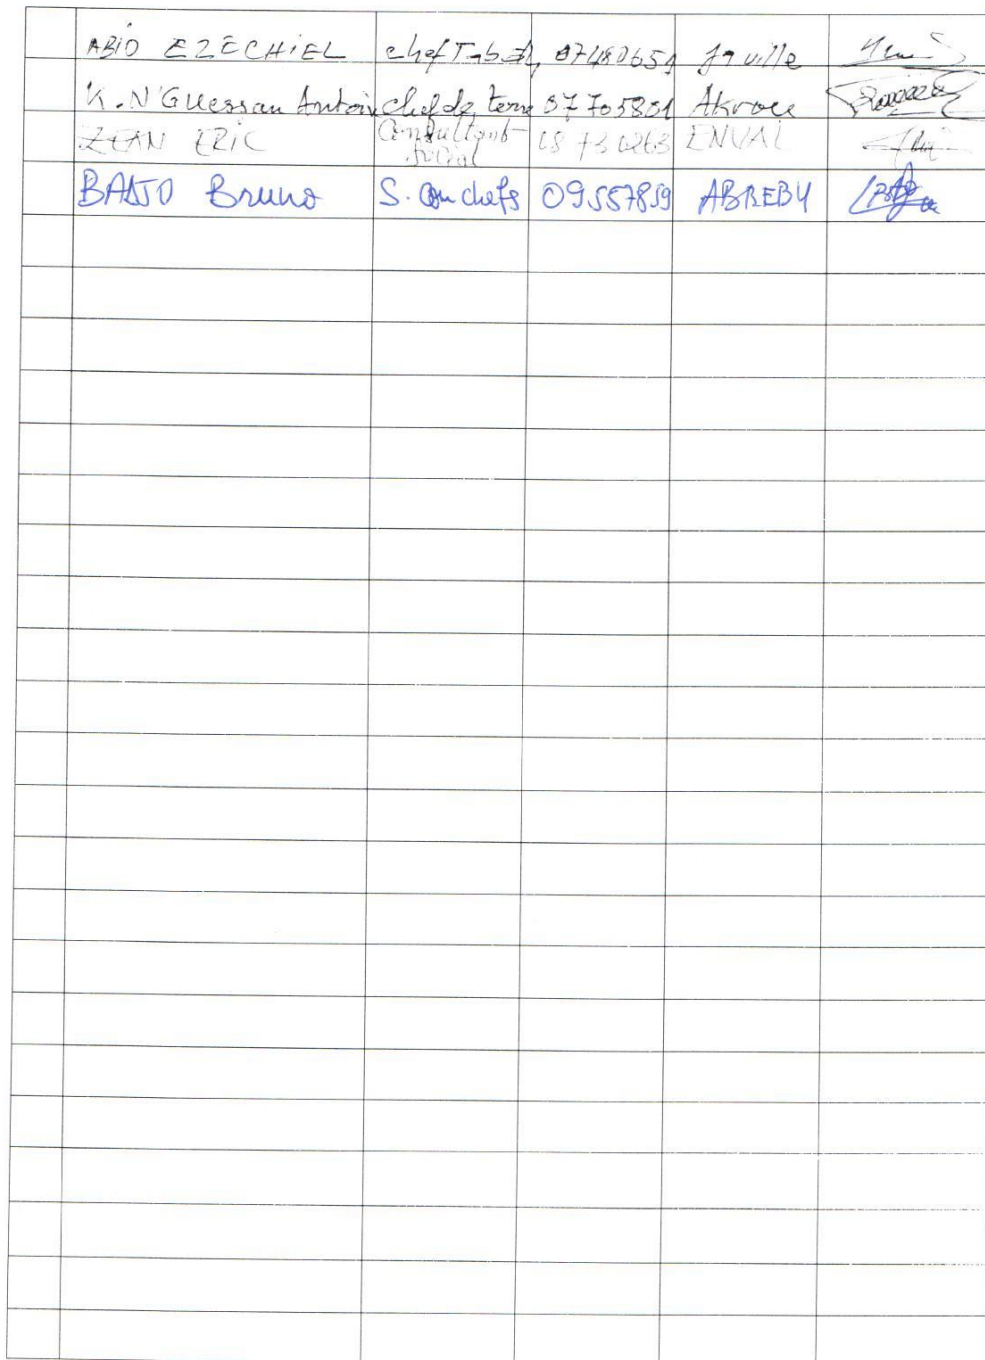 ABIO EZECHIEL chef 07480651
K. N'Guessan Antoin chef de terre 07705801 Akrou
ZEAN ERIC Consultant social ENVAL
Bruno S. chefs 09557859 ABREBY